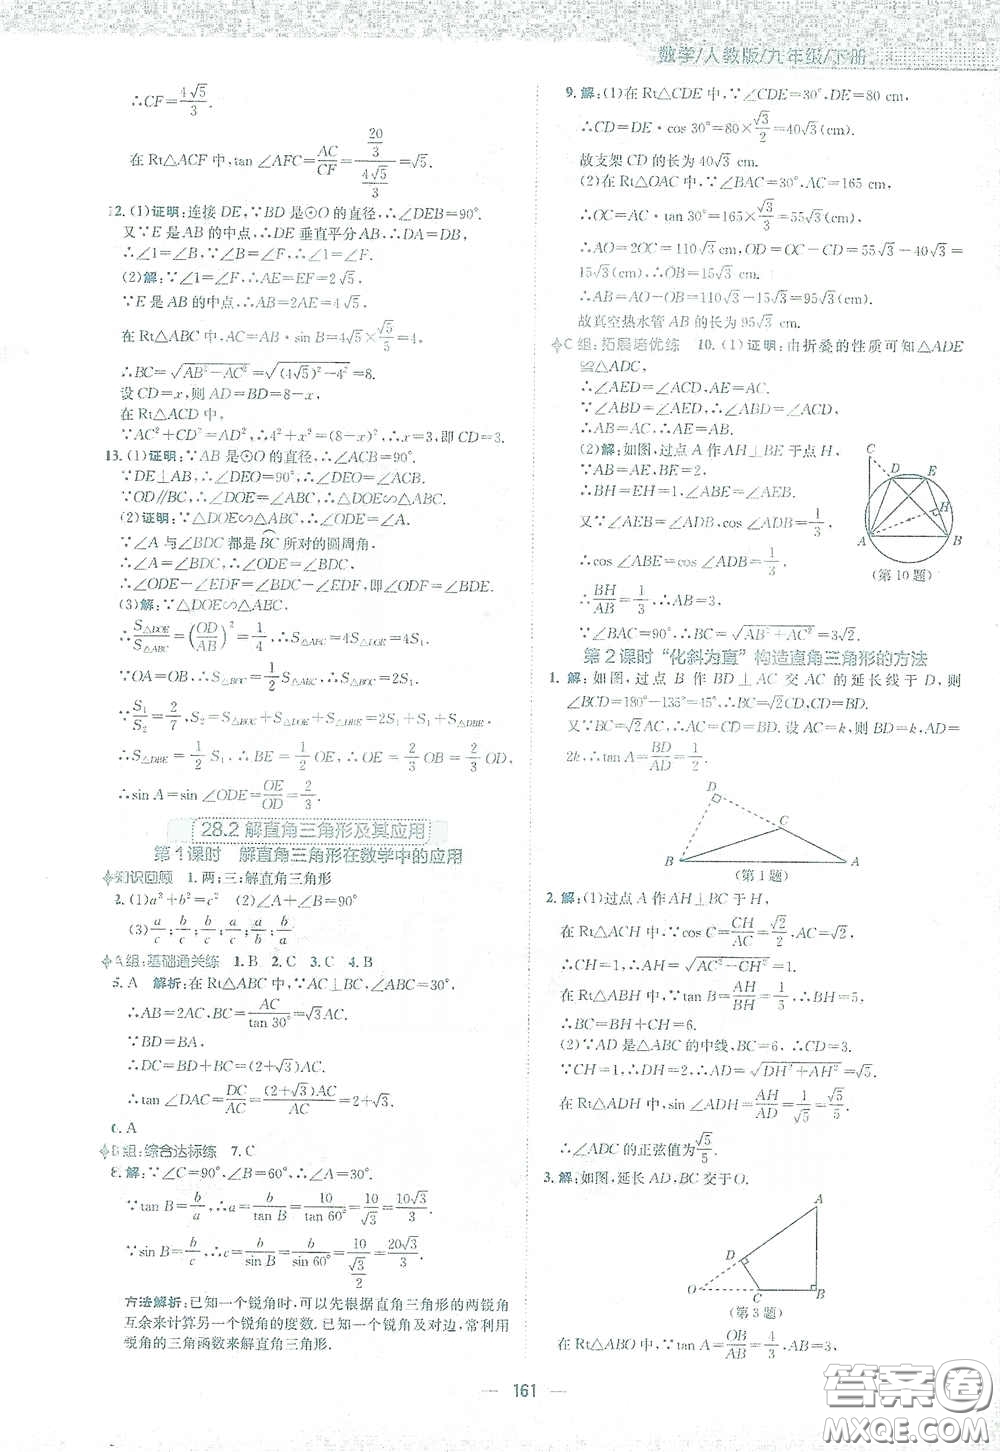 数学/人教版/九年级/下册
∴CF=4√5/3.
在 Rt△ACF 中,tan ∠AFC=AC/CF=(20/3)/(4√5/3)=√5.
12. (1)证明:连接 DE,∵BD 是⊙O 的直径,∴∠DEB=90°.
又∵E 是 AB 的中点,∴DE 垂直平分 AB,∴DA=DB,
∴∠1=∠B.∵∠B=∠F,∴∠1=∠F.
(2)解:∵∠1=∠F,∴AE=EF=2√5.
∵E 是 AB 的中点,∴AB=2AE=4√5.
在 Rt△ABC 中,AC=AB·sin B=4√5×√5/5=4,
∴BC=√(AB²-AC²)=√((4√5)²-4²)=8.
设 CD=x,则 AD=BD=8-x,
在 Rt△ACD 中,
∵AC²+CD²=AD²,∴4²+x²=(8-x)²,∴x=3,即 CD=3.
13. (1)证明:∵AB 是⊙O 的直径,∴∠ACB=90°.
∵DE⊥AB,∴∠DEO=90°,∴∠DEO=∠ACB.
∵OD∥BC,∴∠DOE=∠ABC,∴△DOE∽△ABC.
(2)证明:∵△DOE∽△ABC,∴∠ODE=∠A.
∵∠A 与∠BDC 都是BC所对的圆周角,
∴∠A=∠BDC,∴∠ODE=∠BDC,
∴∠ODE-∠EDF=∠BDC-∠EDF,即∠ODF=∠BDE.
(3)解:∵△DOE∽△ABC,
∴S△DOE/S△ABC=(OD/AB)²=1/4,∴S△ABC=4S△DOE=4S1,
∵OA=OB,∴S△BOC=1/2 S△ABC,∴S△BOC=2S1.
∵S1/S2=2/7,S2=S△BOC+S△DOE+S△DBE=2S1+S1+S△DBE,
∴S△DBE=1/2 S1,∴BE=1/2 OE,∴OE=2/3 OB=2/3 OD,
∴sin A=sin ∠ODE=OE/OD=2/3.
28.2 解直角三角形及其应用
第1课时 解直角三角形在数学中的应用
知识回顾 1. 两;三;解直角三角形
2. (1)a²+b²=c² (2)∠A+∠B=90°
(3)a/c;b/c;b/c;a/c;a/b;b/a
A组:基础通关练 1. B 2. C 3. C 4. B
5. A 解析:在 Rt△ABC 中,∵AC⊥BC,∠ABC=30°,
∴AB=2AC,BC=AC/tan 30°=√3AC.
∵BD=BA,
∴DC=BD+BC=(2+√3)AC,
∴tan ∠DAC=DC/AC=(2+√3)AC/AC=2+√3.
6. A
B组:综合达标练 7. C
8. 解:∵∠C=90°,∠B=60°,∴∠A=30°.
∵tan B=b/a,∴a=b/tan B=10/tan 60°=10/√3=10√3/3.
∵sin B=b/c,∴c=b/sin B=10/sin 60°=10/(√3/2)=20√3/3.
方法解析:已知一个锐角时,可以先根据直角三角形的两锐角
互余来计算另一个锐角的度数.已知一个锐角及对边,常利用
锐角的三角函数来解直角三角形.
9. 解:(1)在 Rt△CDE 中,∵∠CDE=30°,DE=80 cm,
∴CD=DE·cos 30°=80×√3/2=40√3(cm).
故支架 CD 的长为 40√3 cm.
(2)在 Rt△OAC 中,∵∠BAC=30°,AC=165 cm,
∴OC=AC·tan 30°=165×√3/3=55√3(cm),
∴AO=2OC=110√3 cm,OD=OC-CD=55√3-40√3=
15√3(cm),∴OB=15√3 cm,
∴AB=AO-OB=110√3-15√3=95√3(cm).
故真空热水管 AB 的长为 95√3 cm.
C组:拓展培优练 10. (1)证明:由折叠的性质可知△ADE
≌△ADC,
∴∠AED=∠ACD,AE=AC.
∵∠ABD=∠AED,∴∠ABD=∠ACD,
∴AB=AC,∴AE=AB.
(2)解:如图,过点 A 作 AH⊥BE 于点 H,
∵AB=AE,BE=2,
∴BH=EH=1,∠ABE=∠AEB.
又∵∠AEB=∠ADB,cos ∠ADB=1/3,
∴cos ∠ABE=cos ∠ADB=1/3,
∴BH/AB=1/3,∴AB=AC=3,
∵∠BAC=90°,∴BC=√(AB²+AC²)=3√2.
C D E H A B
(第10题)
第2课时 “化斜为直”构造直角三角形的方法
1. 解:如图,过点 B 作 BD⊥AC 交 AC 的延长线于 D,则
∠BCD=180°-135°=45°,∴BC=√2CD,CD=BD.
又∵BC=√2AC,∴AC=CD=BD.设 AC=k,则 BD=k,AD=
2k,∴tan A=BD/AD=1/2.
D C B A
(第1题)
2. 解:(1)过点 A 作AH⊥BC于 H,
在 Rt△ACH 中,∵cos C=CH/AC=√2/2,AC=√2,
∴CH=1,∴AH=√(AC²-CH²)=1.
在 Rt△ABH 中,∵tan B=AH/BH=1/5,∴BH=5,
∴BC=BH+CH=6.
(2)∵AD 是△ABC 的中线,BC=6,∴CD=3.
∵CH=1,∴DH=2,∴AD=√(DH²+AH²)=√5.
在 Rt△ADH 中,sin ∠ADH=AH/AD=1/√5=√5/5.
∴∠ADC 的正弦值为√5/5.
3. 解:如图,延长 AD,BC 交于O.
A D O C B
(第3题)
在 Rt△ABO 中,∵tan A=OB/AB=4/3,AB=3,
— 161 —
答案圈
MXQE.COM